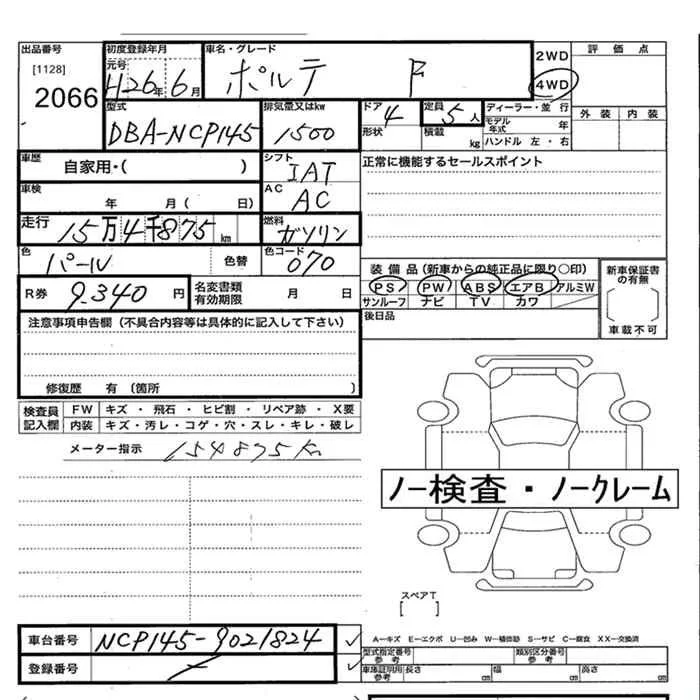 出品番号 初度登録年月 車名・グレード 2WD 評価点
[1128] 元号 H26年6月 ポルテ F 4WD
2066 外装 内装
型式 排気量又はkw ドア 4 定員 5人 ディーラー・並行
DBA-NCP145 1500 形状 積載 kg モデル年式 年
ハンドル 左・右
車歴 自家用・( ) シフト IAT 正常に機能するセールスポイント
車検 年 月( 日) AC AC
走行 15万4千875km 燃料 ガソリン
色 パール 色替 色コード 070 装備品(新車からの純正品に限り〇印) 新車保証書の有無
PS PW ABS エアB アルミW
R券 9.340円 名変書類有効期限 月 日 サンルーフ ナビ TV カワ
注意事項申告欄(不具合内容等は具体的に記入して下さい) 後日品 車載不可
修復歴 有(箇所 )
検査員記入欄 FW キズ・飛石・ヒビ割・リペア跡・X要
内装 キズ・汚レ・コゲ・穴・スレ・キレ・破レ
メーター指示 154875Km
ノー検査・ノークレーム
スペアT
[ ]
車台番号 NCP145-9021824 A―キズ E―エクボ U―凹み W―補修跡 S―サビ C―腐食 XX―交換済
型式指定番号参考 類別区分番号参考
登録番号 車庫証明用参考 長さ cm 幅 cm 高さ cm